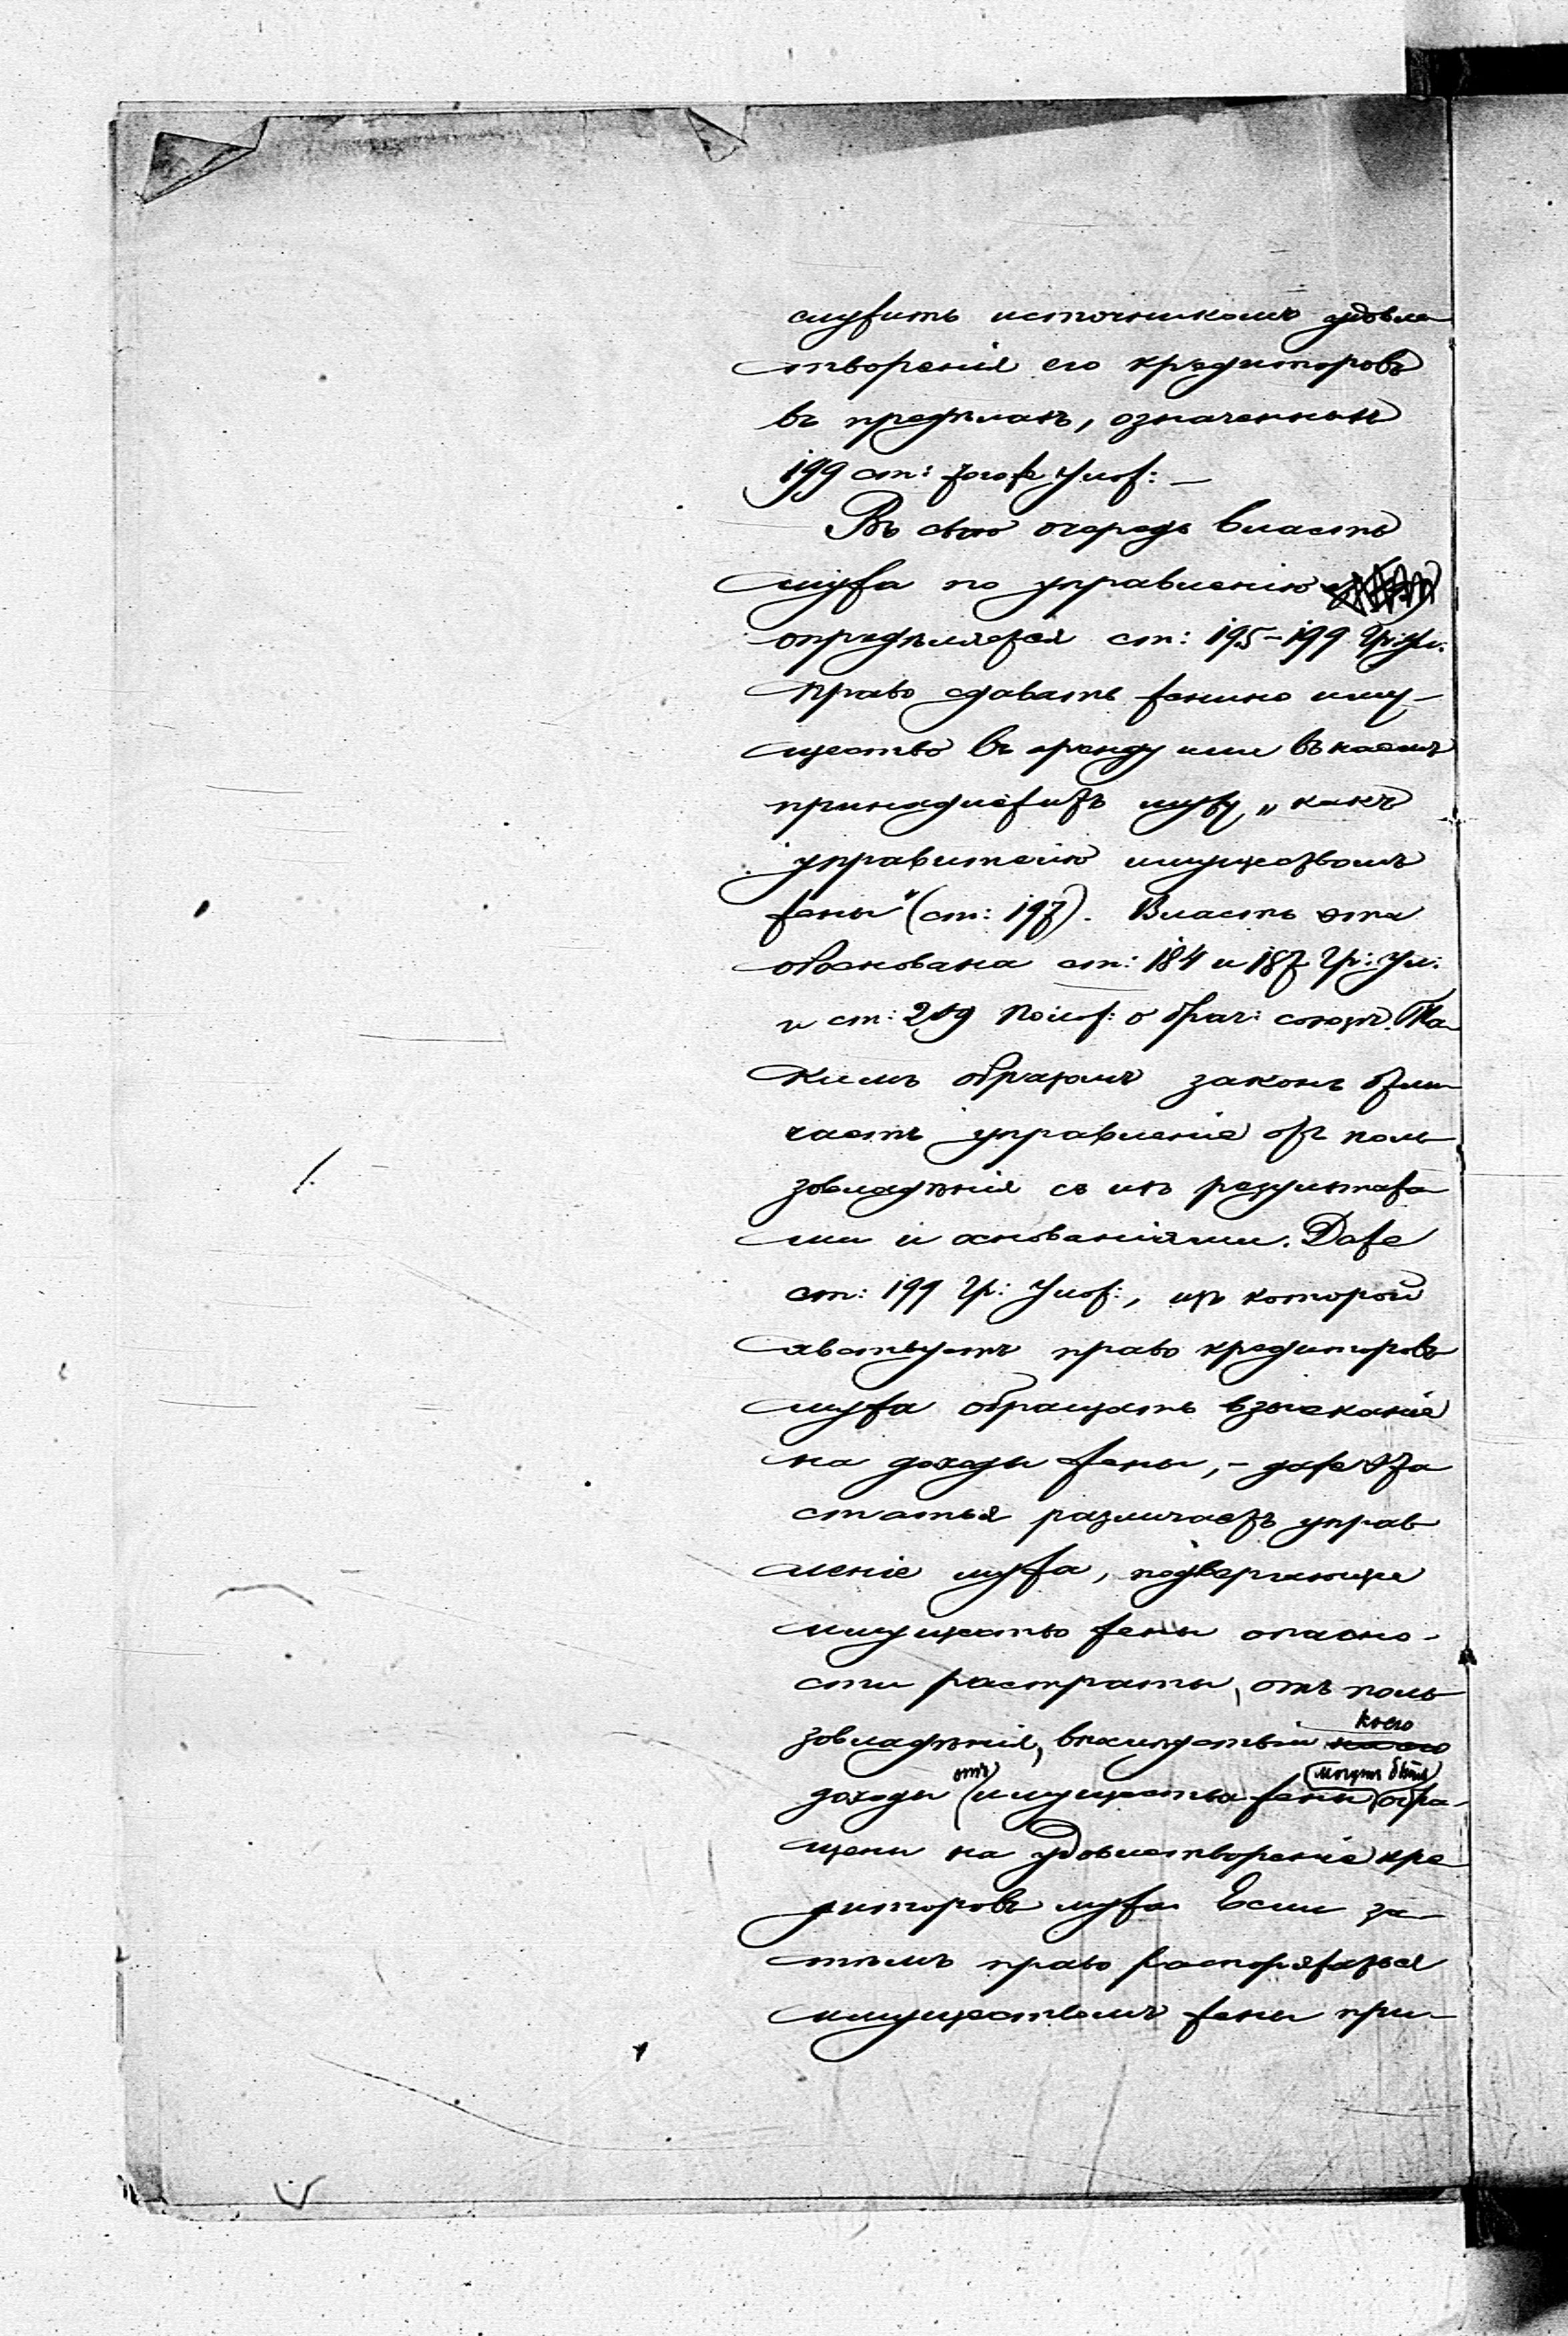 служить источникомъ удовле-
творенія его кредиторовъ
въ предѣлахъ, означенныхъ
199 ст: тогоже Улож: —
Въ свою очередь власть
мужа по управленію
опредѣляется ст: 195-199 Гр: Ул:
право сдавать женино иму-
щество въ аренду или въ наемъ
принадлежитъ мужу „какъ
управителю имуществомъ
жены" (ст: 197). Власть эта
обоснована ст: 184 и 187 Гр: Ул:
и ст: 209 Полож: о брач: союзѣ. Та-
кимъ образомъ законъ отли-
чаетъ управленіе отъ поль-
зовладѣнія съ ихъ результата-
ми и основаніями. Даже
ст: 199 Гр: Улож:, изъ которой
явствуетъ право кредиторовъ
мужа обращать взысканіе
на доходы жены, - даже эта
статья различаетъ управ-
леніе мужа, подвергающее
имущество жены опасно-
сти растраты, отъ поль-
зовладѣнія, вслѣдствіи коего
доходы отъ имущества жены могутъ быть обра-
щены на удовлетвореніе кре-
диторовъ мужа. Если за-
тѣмъ право распоряжаться
имуществомъ жены при-